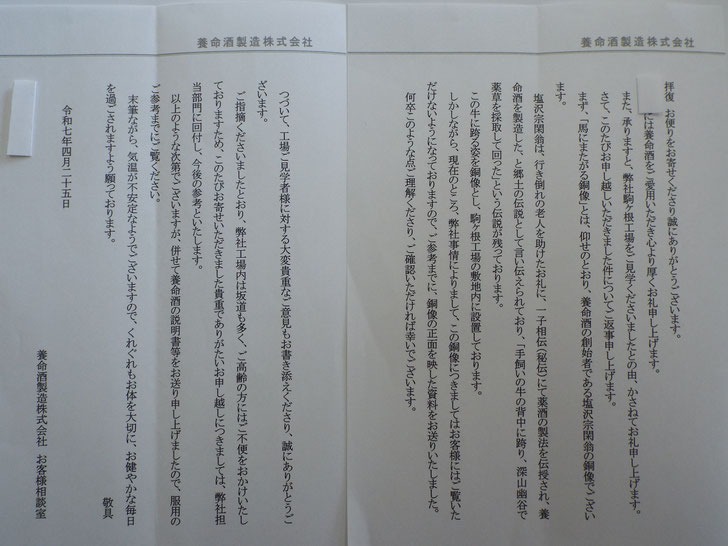 養命酒製造株式会社
拝復 お便りをお寄せくださり誠にありがとうございます。
には養命酒をご愛用いただき心より厚くお礼申し上げます。
また、承りますと、弊社駒ヶ根工場をご見学くださいましたとの由、かさねてお礼申し上げます。
さて、このたびお申し越しいただきました件についてご返事申し上げます。
まず、「馬にまたがる銅像」とは、仰せのとおり、養命酒の創始者である塩沢宗閑翁の銅像でござい
ます。
塩沢宗閑翁は、行き倒れの老人を助けたお礼に、一子相伝(秘伝)にて薬酒の製法を伝授され、養
命酒を製造した、と郷土の伝説として言い伝えられており、「手飼いの牛の背中に跨り、深山幽谷で
薬草を採取して回った」という伝説が残っております。
この牛に跨る姿を銅像とし、駒ヶ根工場の敷地内に設置しております。
しかしながら、現在のところ、弊社事情によりまして、この銅像につきましてはお客様にはご覧いた
だけないようになっておりますので、ご参考までに、銅像の正面を映した資料をお送りいたしました。
何卒このような点ご理解くださり、ご確認いただければ幸いでございます。
養命酒製造株式会社
つづいて、工場ご見学者様に対する大変貴重なご意見もお書き添えくださり、誠にありがとうご
ざいます。
ご指摘くださいましたとおり、弊社工場内は坂道も多く、ご高齢の方にはご不便をおかけいたし
ておりますため、このたびお寄せいただきました貴重でありがたいお申し越しにつきましては、弊社担
当部門に回付し、今後の参考といたします。
以上のような次第でございますが、併せて養命酒の説明書等をお送り申し上げましたので、服用の
ご参考までにご覧ください。
末筆ながら、気温が不安定なようでございますので、くれぐれもお体を大切に、お健やかな毎日
を過ごされますよう願っております。
敬具
令和七年四月二十五日
養命酒製造株式会社 お客様相談室